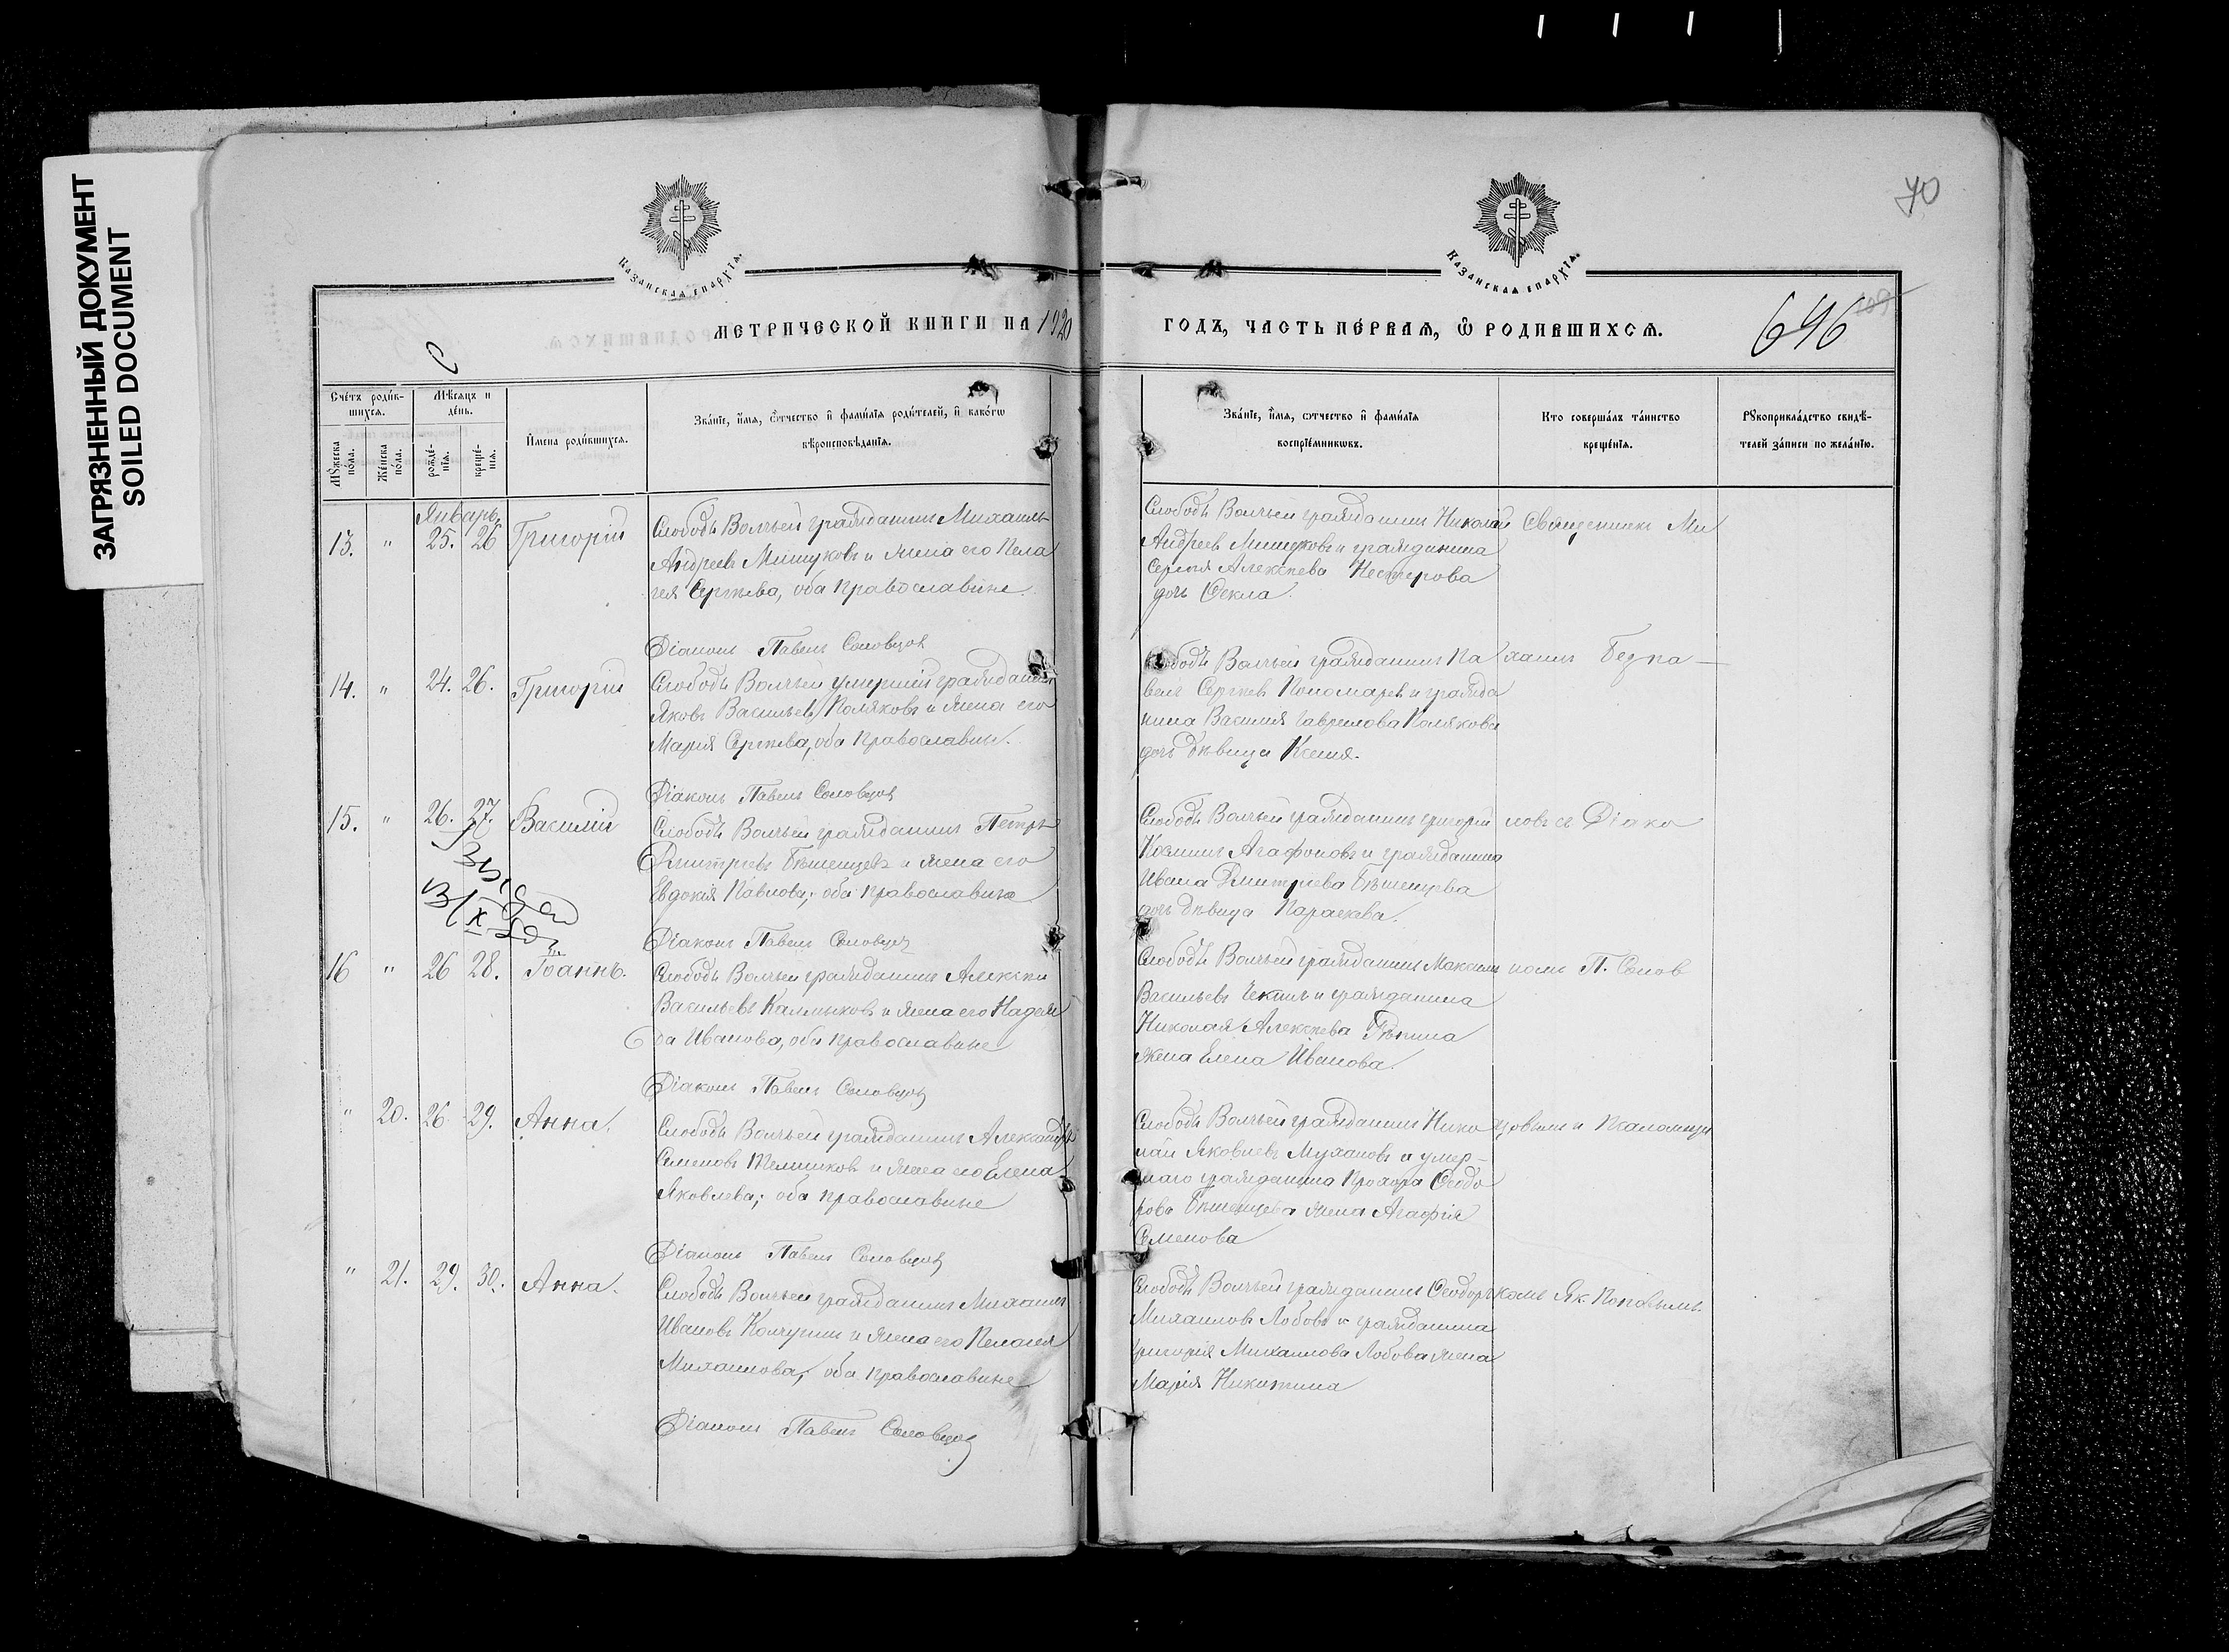 ЗАГРЯЗНЕННЫЙ ДОКУМЕНТ
SOILED DOCUMENT
70
Казанская епархїѧ.
Казанская епархїѧ.
МЕТРИЧЕСКОЙ КНИГИ НА 1920
ГОДЪ, ЧАСТЬ ПЕРВАЯ, Ѡ РОДИВШИХСѦ.
646
Счетъ родив-
шихся.
Мѣсяцъ и
день.
Мужеска
пола.
Женска
пола.
рожде-
нїя.
креще-
нїя.
Имена родившихся.
Званїе, имя, отчество и фамилїя родителей, и какогѡ
вѣроисповѣданїя.
Званїе, имя, отчество и фамилїя
воспрїемниковъ.
Кто совершалъ таинство
крещенїя.
Рукоприкладство свидѣ-
телей записи по желанїю.
Январь
13. " 25. 26 Григорій
Слободы Волчьей гражданинъ Михаилъ
Андреевъ Мишуковъ и жена его Пела
гея Сергѣева, оба православные.
Діаконъ Павелъ Соловцов
Слободы Волчьей гражданинъ Николай
Андреевъ Мишуковъ и гражданина
Сергея Алексѣева Нестерова
дочь Ѳекла.
Священникъ Ми
14. " 24. 26. Григорій
Слободы Волчьей умершій гражданинъ
Яковъ Васильевъ Поляковъ и жена его
Марія Сергѣева, оба православны.
Діаконъ Павелъ Соловцов
Слободы Волчьей гражданинъ Па
велъ Сергѣев Пономарев и гражда
нина Василия Гаврилова Полякова
дочь дѣвица Ксения.
хаилъ Бедна—
15. " 26. 27. Василій
Слободы Волчьей гражданинъ Петръ
Дмитріевъ Бѣшенцевъ и жена его
Евдокія Павлова, оба православные
Діаконъ Павелъ Соловцов
Слободы Волчьей гражданинъ Григорій
Козминъ Агафоновъ и гражданина
Ивана Дмитріева Бѣшенцева
дочь дѣвица Параскева.
новъ съ Діако
16 " 26 28. Іоаннъ.
Слободы Волчьей гражданинъ Алексѣй
Васильевъ Калмыковъ и жена его Надеж
да Иванова, оба православные
Діаконъ Павелъ Соловцов
Слободы Волчьей гражданинъ Максимъ
Васильевъ Чекинъ и гражданина
Николая Алексѣева Рѣпина
жена Елена Иванова.
номъ П. Солов
" 20. 26. 29. Анна.
Слободы Волчьей гражданинъ Александръ
Семеновъ Тельников и жена его Елена
Яковлева; оба православные
Діаконъ Павелъ Соловцов
Слободы Волчьей гражданинъ Нико
лай Яковлевъ Мухановъ и умер-
шаго гражданина Прохора Ѳеодо
рова Бѣшенцева жена Агафія
Семенова
цовымъ и Псаломщи
" 21. 29. 30. Анна.
Слободы Волчьей гражданинъ Михаилъ
Ивановъ Колчунин и жена его Пелагея
Михаилова, оба православные
Діаконъ Павелъ Соловцов
Слободы Волчьей гражданинъ Ѳеодоръ
Михаиловъ Лобовъ и гражданина
Григорія Михаилова Лобова жена
Марія Никитина
комъ Як. Поповымъ.